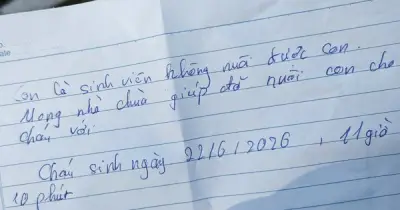 con là sinh viên không nuôi được con.
Mong nhà chùa giúp đỡ nuôi con cho
cháu với
Cháu sinh ngày 22/6/2026, 11 giờ
10 phút